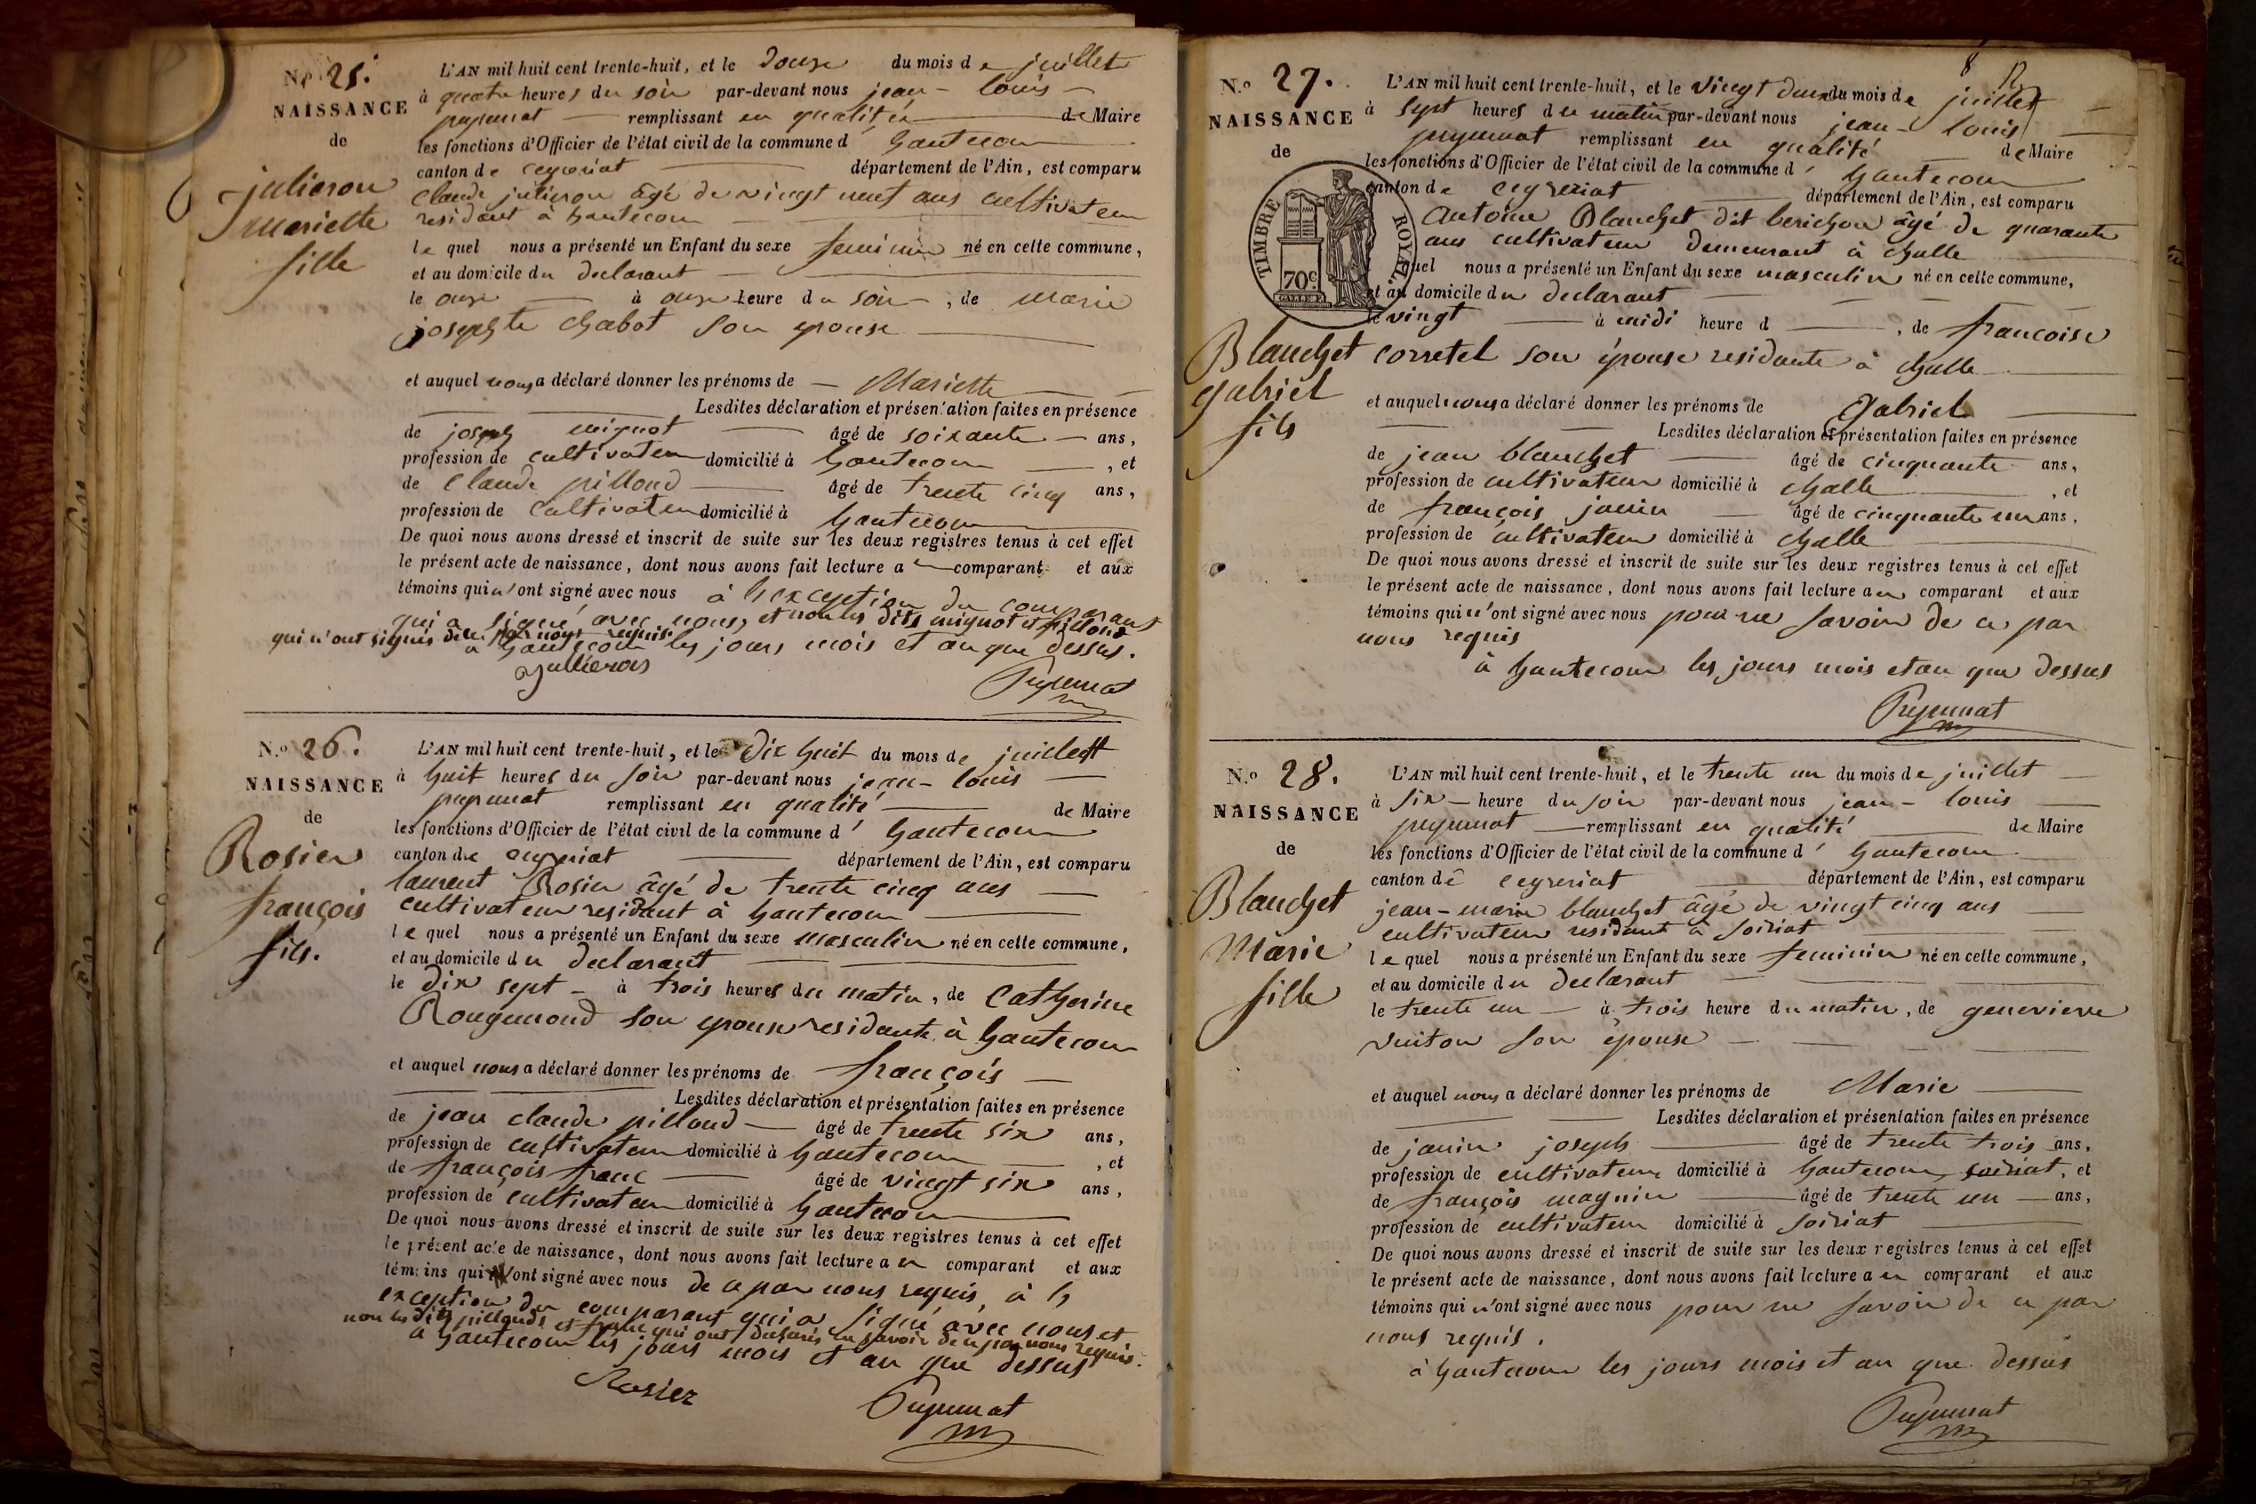 N.º 25.
NAISSANCE
de
julieron
mariette
fille
L'AN mil huit cent trente-huit, et le douze du mois de juillet
à quatre heures du soir par-devant nous jean-louis
remplissant en qualité de Maire
les fonctions d'Officier de l'état civil de la commune d' hautecour
canton de ceyzeriat département de l'Ain, est comparu
Claude julieron âgé de vingt neuf ans cultivateur
residant à hautecour
lequel nous a présenté un Enfant du sexe feminin né en cette commune,
et au domicile du declarant
le onze à onze heure du soir, de marie
josephte chabot son epouse
et auquel nous a déclaré donner les prénoms de Mariette
Lesdites déclaration et présentation faites en présence
de joseph mignot âgé de soixante ans,
profession de cultivateur domicilié à hautecour, et
de Claude pilloud âgé de trente cinq ans,
profession de Cultivateur domicilié à hautecour
De quoi nous avons dressé et inscrit de suite sur les deux registres tenus à cet effet
le présent acte de naissance, dont nous avons fait lecture a comparant et aux
témoins qui n'ont signé avec nous à l'exception du comparant
qui a signé avec nous, et non les dits mignot et pilloud
qui n'ont signés de ce par nous requis
à hautecour les jours mois et an que dessus.
Jullieron
N.º 26.
NAISSANCE
de
Rosier
françois
fils.
L'AN mil huit cent trente-huit, et le dix huit du mois de juillet
à huit heures du soir par-devant nous jean-louis
remplissant en qualité de Maire
les fonctions d'Officier de l'état civil de la commune d' hautecour
canton de ceyzeriat département de l'Ain, est comparu
laurent Rosier âgé de trente cinq ans
cultivateur residant à hautecour
lequel nous a présenté un Enfant du sexe masculin né en cette commune,
et au domicile du declarant
le dix sept à trois heures du matin, de Catherine
Rougemond son epouse residante à hautecour
et auquel nous a déclaré donner les prénoms de françois
Lesdites déclaration et présentation faites en présence
de jean claude pilloud âgé de trente six ans,
profession de cultivateur domicilié à hautecour, et
de françois franc âgé de vingt six ans,
profession de cultivateur domicilié à hautecour
De quoi nous avons dressé et inscrit de suite sur les deux registres tenus à cet effet
le présent acte de naissance, dont nous avons fait lecture au comparant et aux
témoins qui n'ont signé avec nous de ce par nous requis, à l'
exception du comparant qui a signé avec nous et
non les dits pilloud et franc qui ont declarés ne savoir de ce par nous requis.
à hautecour les jours mois et an que dessus
Rosier
8
N.º 27.
NAISSANCE
de
TIMBRE ROYAL
70c
Blanchet
gabriel
fils
L'AN mil huit cent trente-huit, et le vingt deux du mois de juillet
à sept heures du matin par-devant nous jean-louis
remplissant en qualité de Maire
les fonctions d'Officier de l'état civil de la commune d' hautecour
canton de ceyzeriat département de l'Ain, est comparu
Antoine Blanchet dit berichon âgé de quarante
ans cultivateur demeurant à challe
quel nous a présenté un Enfant du sexe masculin né en cette commune,
et au domicile du declarant
le vingt à midi heure d, de francoise
corretel son épouse residante à challe
et auquel nous a déclaré donner les prénoms de Gabriel
Lesdites déclaration et présentation faites en présence
de jean blanchet âgé de cinquante ans,
profession de cultivateur domicilié à challe, et
de françois janin âgé de cinquante un ans,
profession de cultivateur domicilié à challe
De quoi nous avons dressé et inscrit de suite sur les deux registres tenus à cet effet
le présent acte de naissance, dont nous avons fait lecture au comparant et aux
témoins qui n'ont signé avec nous pour ne savoir de ce par
nous requis
à hautecour les jours mois et an que dessus
N.º 28.
NAISSANCE
de
Blanchet
Marie
fille
L'AN mil huit cent trente-huit, et le trente un du mois de juillet
à six heure du soir par-devant nous jean-louis
remplissant en qualité de Maire
les fonctions d'Officier de l'état civil de la commune d' hautecour
canton de ceyzeriat département de l'Ain, est comparu
jean-marie blanchet âgé de vingt cinq ans
cultivateur residant à soiriat
lequel nous a présenté un Enfant du sexe feminin né en cette commune,
et au domicile du declarant
le trente un à trois heure du matin, de genevieve
vuiton son épouse
et auquel nous a déclaré donner les prénoms de Marie
Lesdites déclaration et présentation faites en présence
de janin joseph âgé de trente trois ans,
profession de cultivateur domicilié à hautecour soiriat, et
de françois magnin âgé de trente un ans,
profession de cultivateur domicilié à soiriat
De quoi nous avons dressé et inscrit de suite sur les deux registres tenus à cet effet
le présent acte de naissance, dont nous avons fait lecture au comparant et aux
témoins qui n'ont signé avec nous pour ne savoir de ce par
nous requis.
à hautecour les jours mois et an que dessus